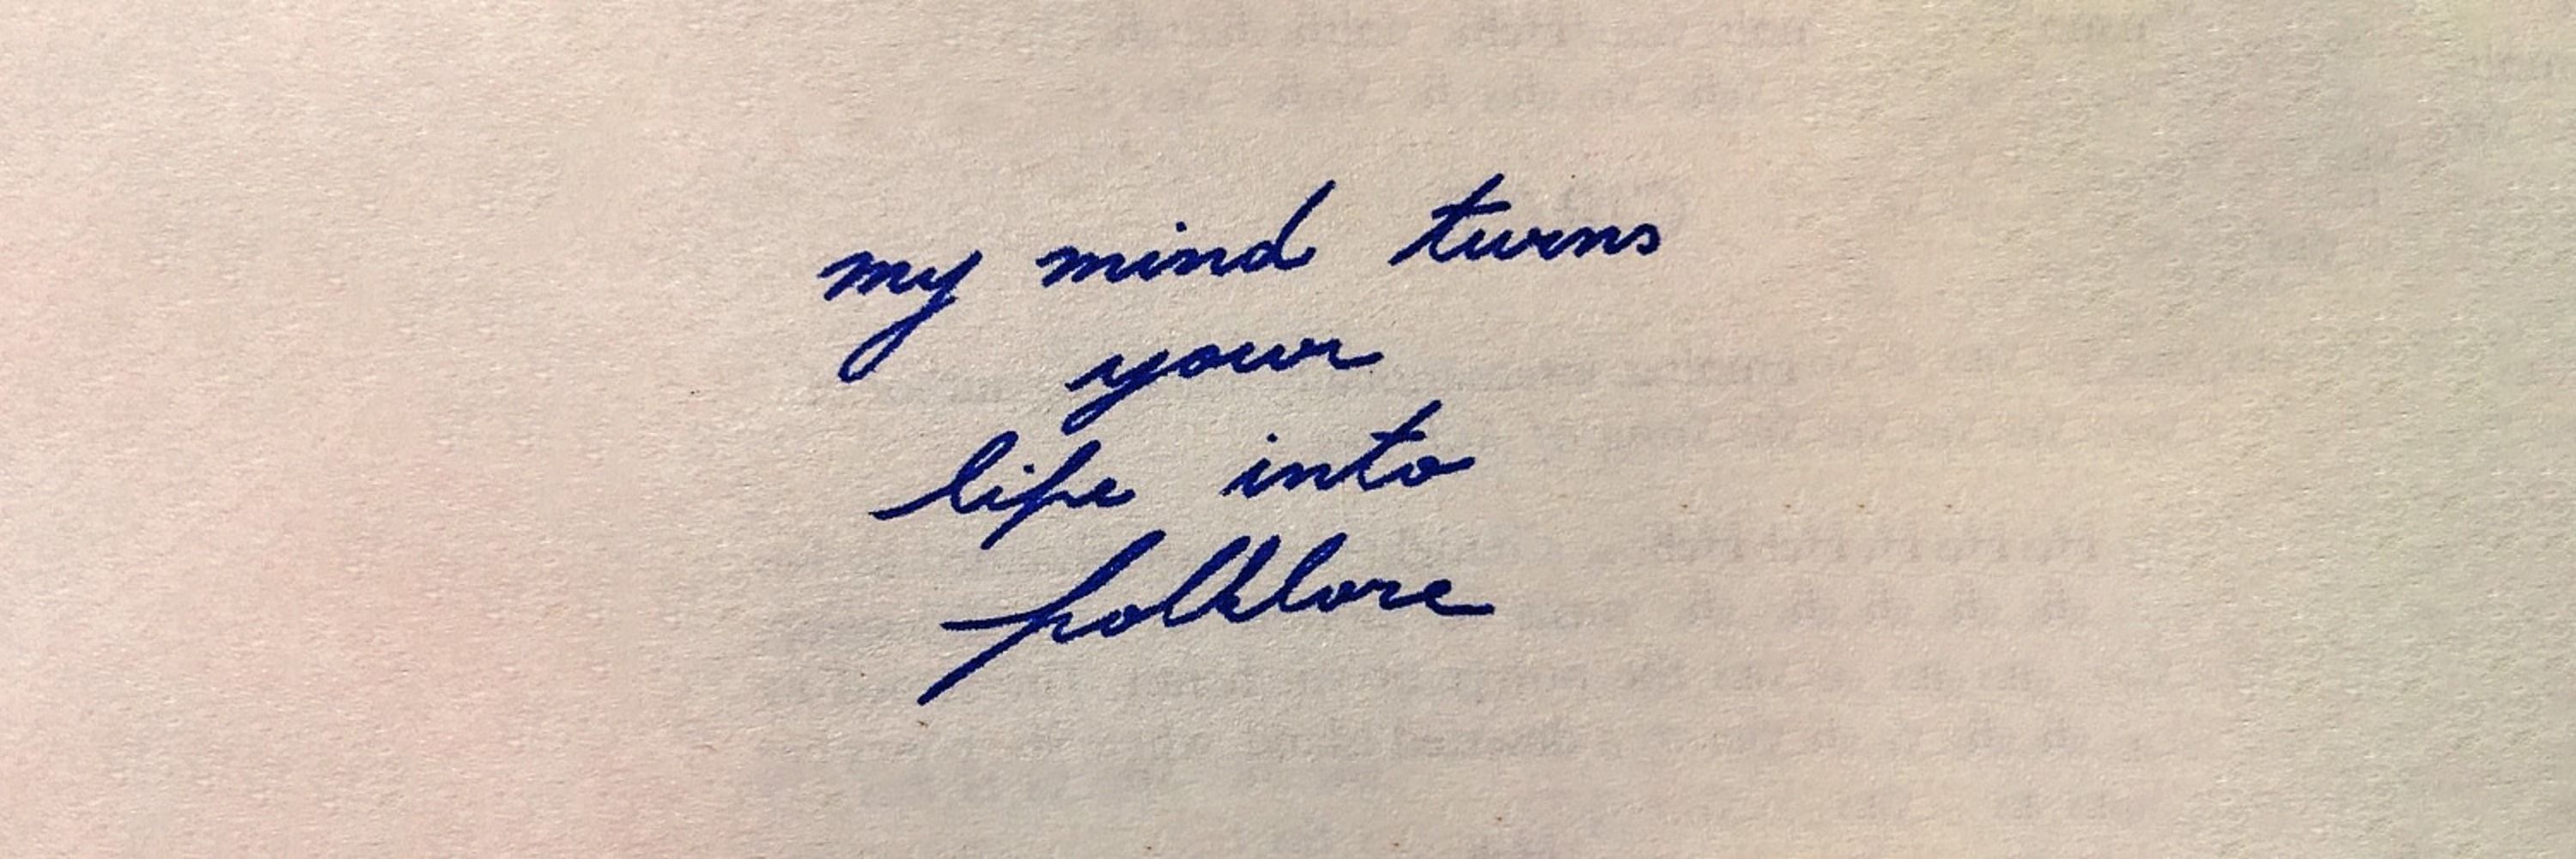 my mind turns
your
life into
folklore